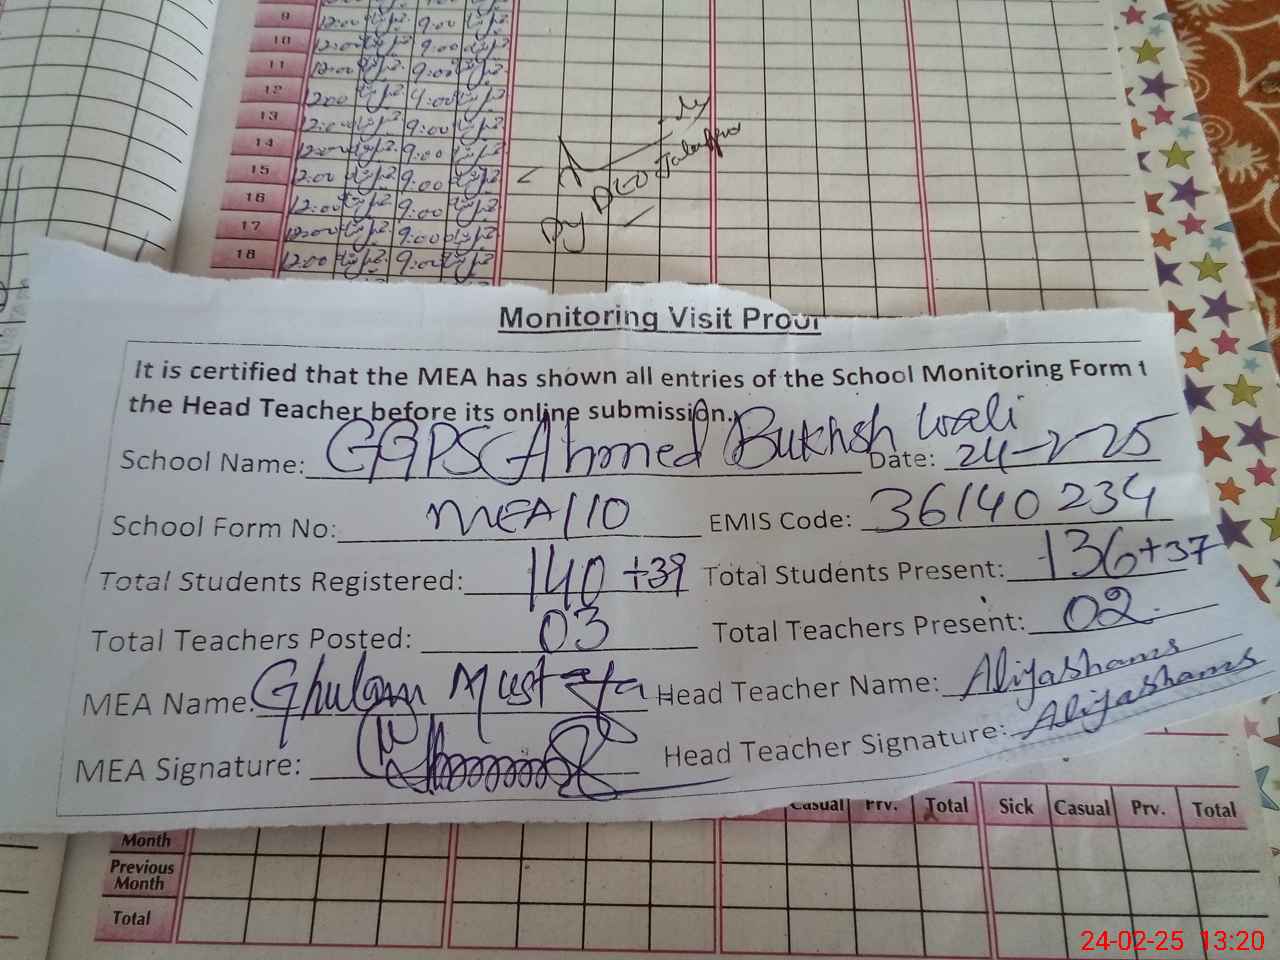 9 12:00 9:00
10 12:00 9:00
11 12:00 9:00
12 12:00 9:00
13 12:00 9:00
14 12:00 9:00
15 12:00 9:00
16 12:00 9:00
17 12:00 9:00
18 12:00 9:00
Dy DEO Jalalpur
Monitoring Visit Proof
It is certified that the MEA has shown all entries of the School Monitoring Form t
the Head Teacher before its online submission.
School Name: GGPS Ahmed Bukhsh Wali Date: 24-2-25
School Form No: MEA/10 EMIS Code: 36140234
Total Students Registered: 140+39 Total Students Present: 136+37
Total Teachers Posted: 03 Total Teachers Present: 02
MEA Name: Ghulam Mustafa Head Teacher Name: Aliyashams
MEA Signature: Head Teacher Signature: Aliyashams
Casual Prv. Total Sick Casual Prv. Total
Month
Previous
Month
Total
24-02-25 13:20